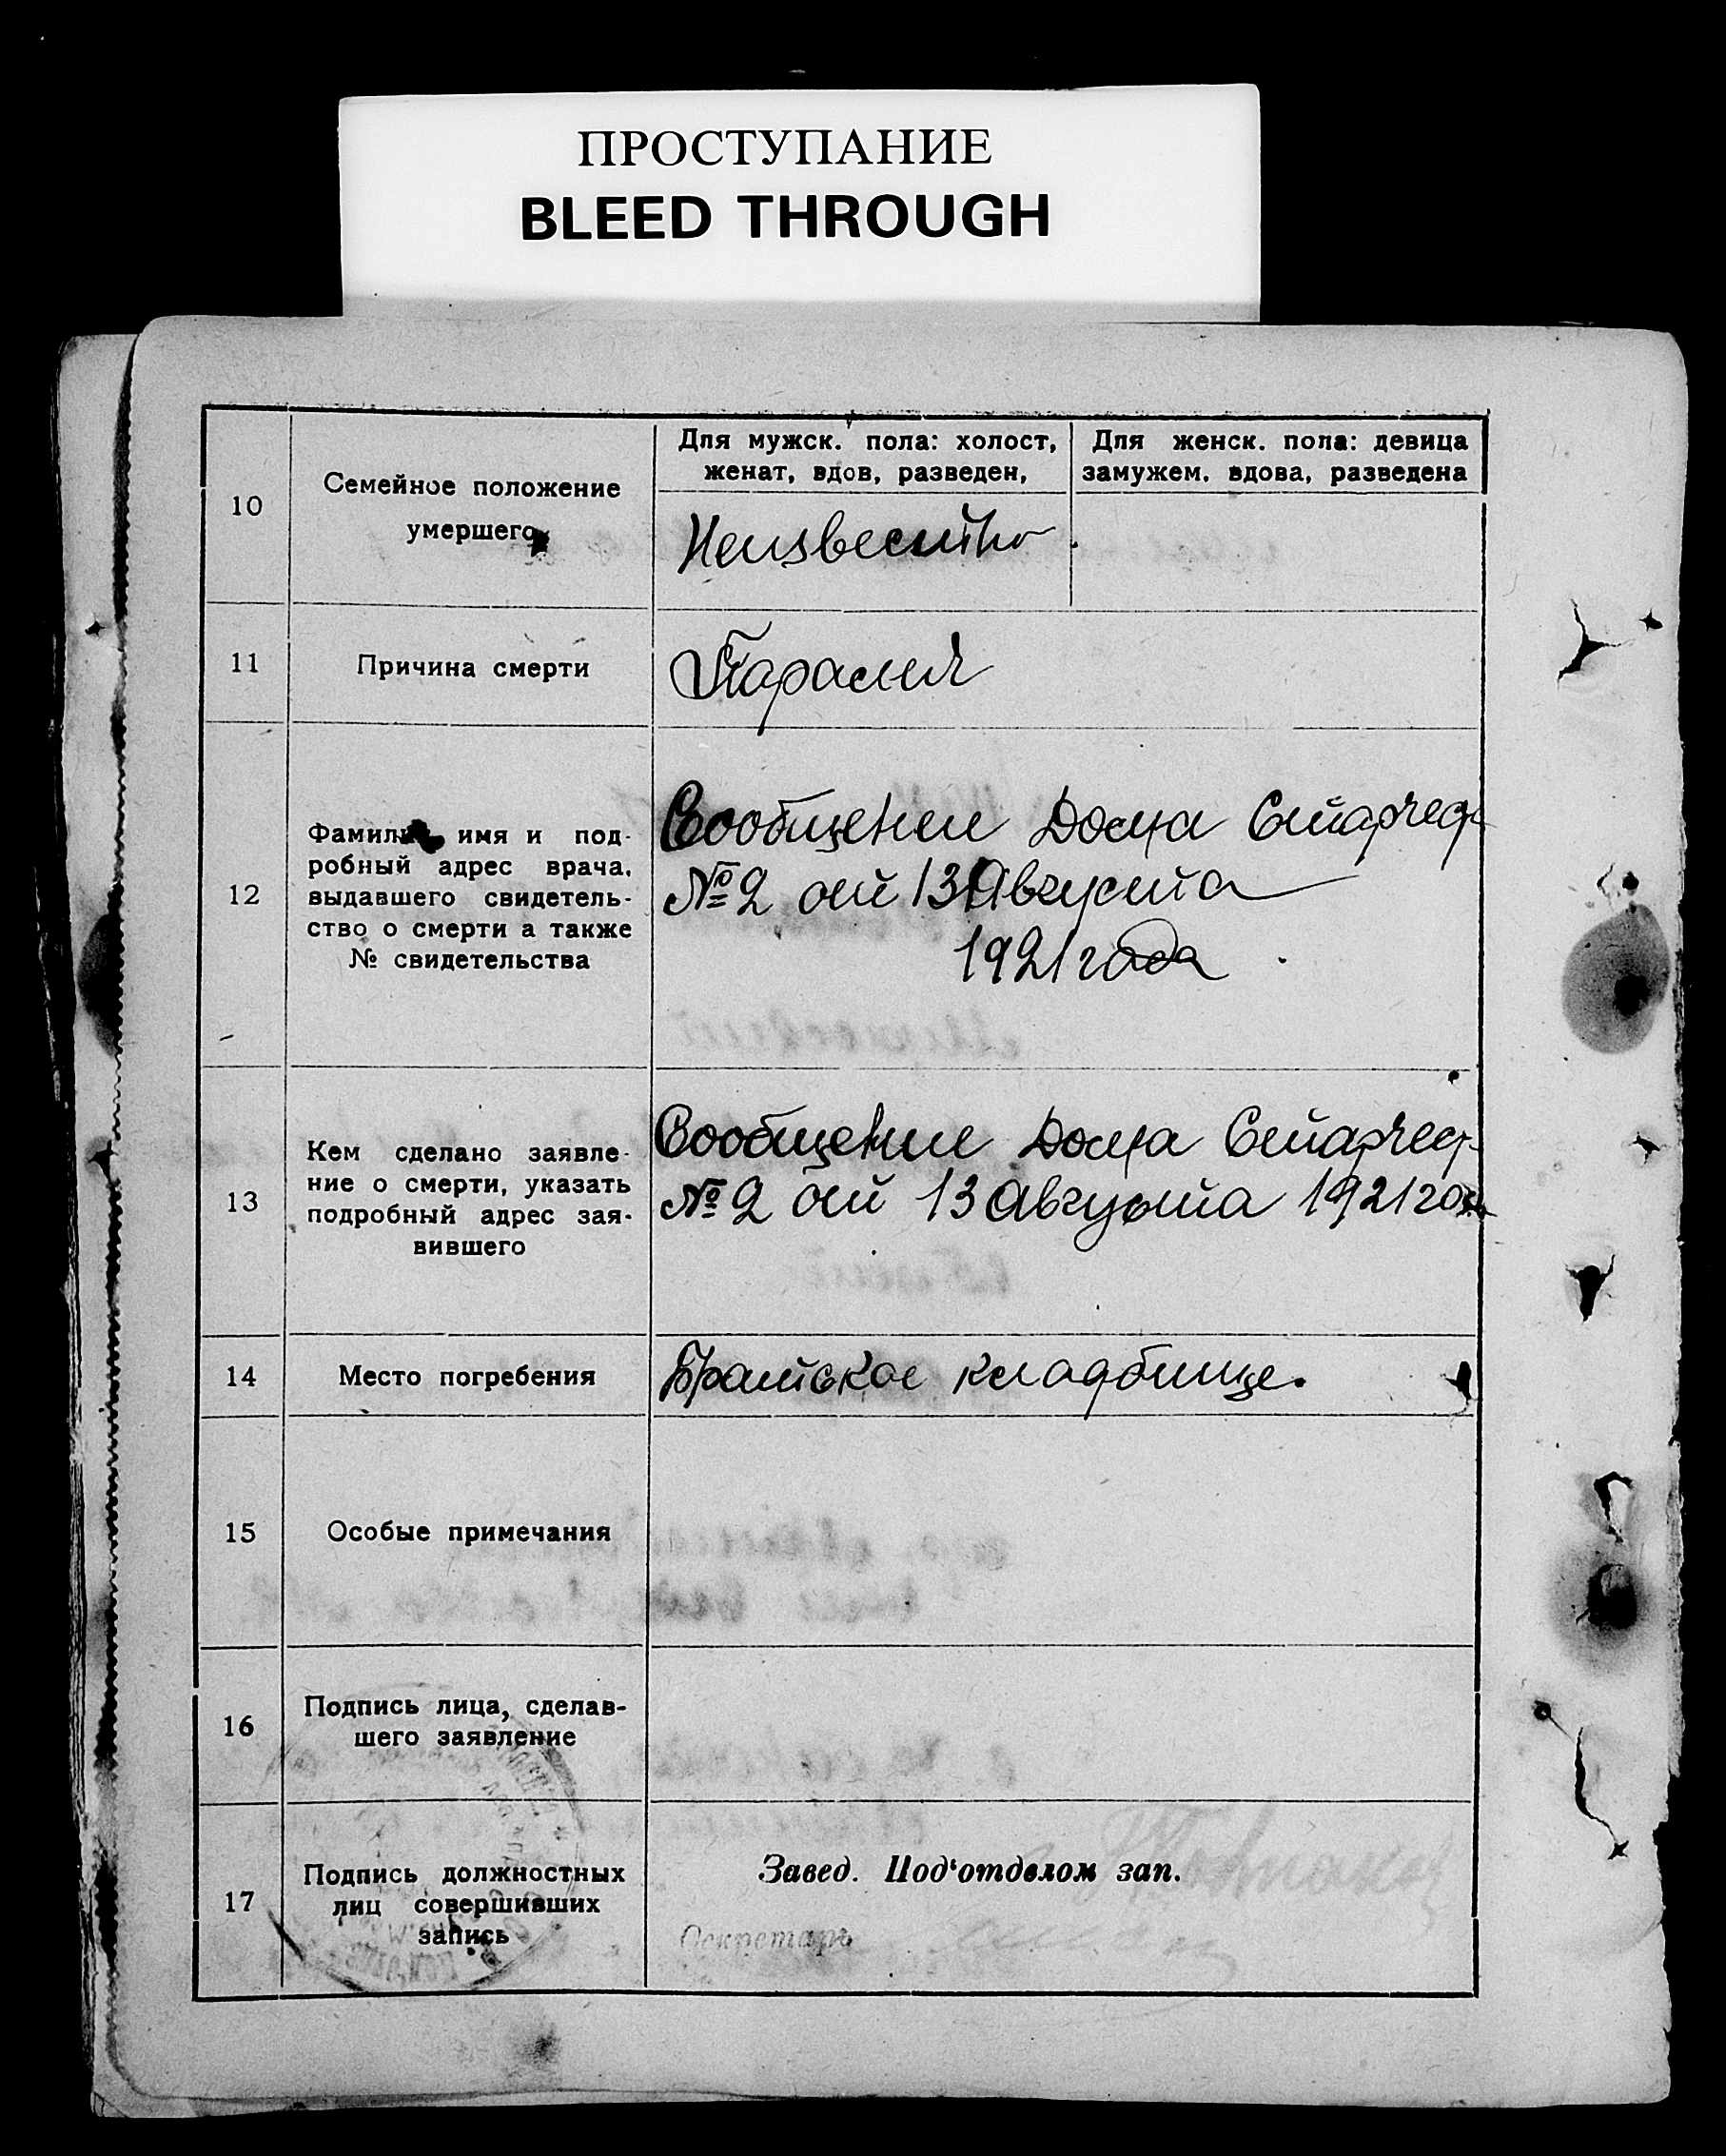 ПРОСТУПАНИЕ
BLEED THROUGH
Для мужск. пола: холост,
женат, вдов, разведен,
Для женск. пола: девица
замужем, вдова, разведена
10
Семейное положение
умершего
Неизвестно
11
Причина смерти
Паралич
12
Фамилия имя и под-
робный адрес врача,
выдавшего свидетель-
ство о смерти а также
№ свидетельства
Сообщение Дома Старчес
№ 2 от 13 Августа
1921 года
13
Кем сделано заявле-
ние о смерти, указать
подробный адрес зая-
вившего
Сообщение Дома Старчес
№ 2 от 13 Августа 1921 года
14
Место погребения
Братское кладбище.
15
Особые примечания
16
Подпись лица, сделав-
шего заявление
17
Подпись должностных
лиц совершивших
запись
Завед. Под'отделом зап.
Секретарь